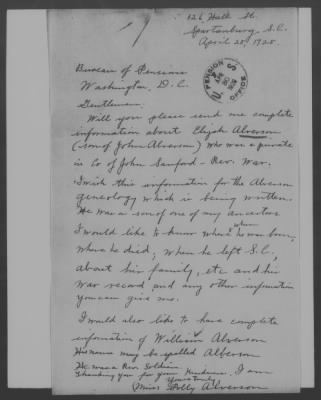 126 Hall St.
Spartanburg, S.C.
April 28, 1925.
Bureau of Pensions
Washington, D.C.
Gentlemen:
Will you please send me complete
information about Elijah Alverson
(son of John Alverson) who was a private
in Co of John Sanford - Rev. War.
I wish this information for the Alverson
geneology which is being written.
He was a son of one of my ancestors
I would like to know where when he was born,
where he died, when he left S.C.,
about his family, etc. and his
war record and any other information
you can give me.
I would also like to have complete
information of William Alverson
His name may be spelled Alberson
He was a Rev. Soldier.
Thanking you for your kindness, I am
Yours truly,
(Miss) Polly Alverson
U.S. PENSION OFFICE
APR